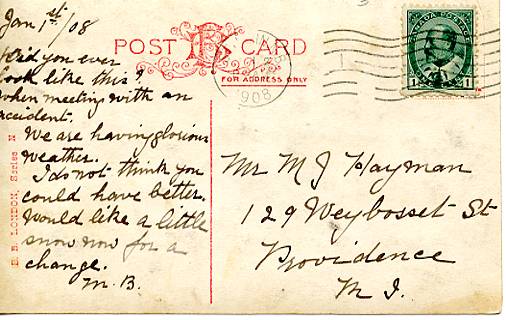 Jan 1st/08
Did you ever
look like this?
when meeting with an
accident.
We are having glorious
weather.
I do not think you
could have better.
Would like a little
snow now for a
change.
M.B.
POST CARD
FOR ADDRESS ONLY
1908
CANADA POSTAGE
1 1
Mr M J Hayman
129 Weybosset St
Providence
M I.
B. B. LONDON, Series N